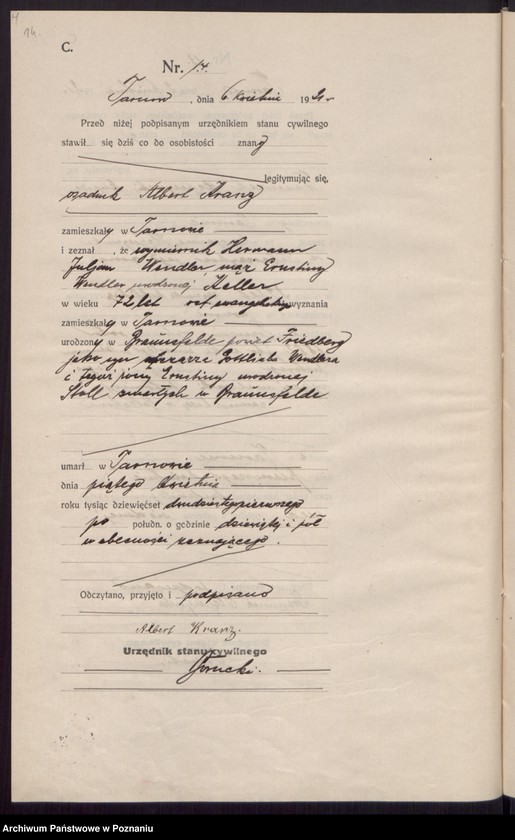 14.
C.
Nr. 14.
Tarnow, dnia 6 kwietnia 1921 r
Przed niżej podpisanym urzędnikiem stanu cywilnego
stawił się dziś co do osobistości znany
legitymując się,
osadnik Albert Kranz
zamieszkały w Tarnowie
i zeznał, że wymiernik Hermann
Juljan Wendler, mąż Ernstiny
Wendler urodzonej Keller
w wieku 72 lat wyznania
zamieszkały w Tarnowie
urodzony w Braunsfelde powiat Friedberg
jako syn Gottlieba Wendlera
i tegoż żony Ernstiny urodzonej
Stoll zmarłych w Braunsfelde
umarł w Tarnowie
dnia piątego kwietnia
roku tysiąc dziewięćset dwudziestegopierwszego
po połudn. o godzinie dziewiątej i pół
w obecności zeznającego.
Odczytano, przyjęto i podpisano
Albert Kranz.
Urzędnik stanu cywilnego
Archiwum Państwowe w Poznaniu